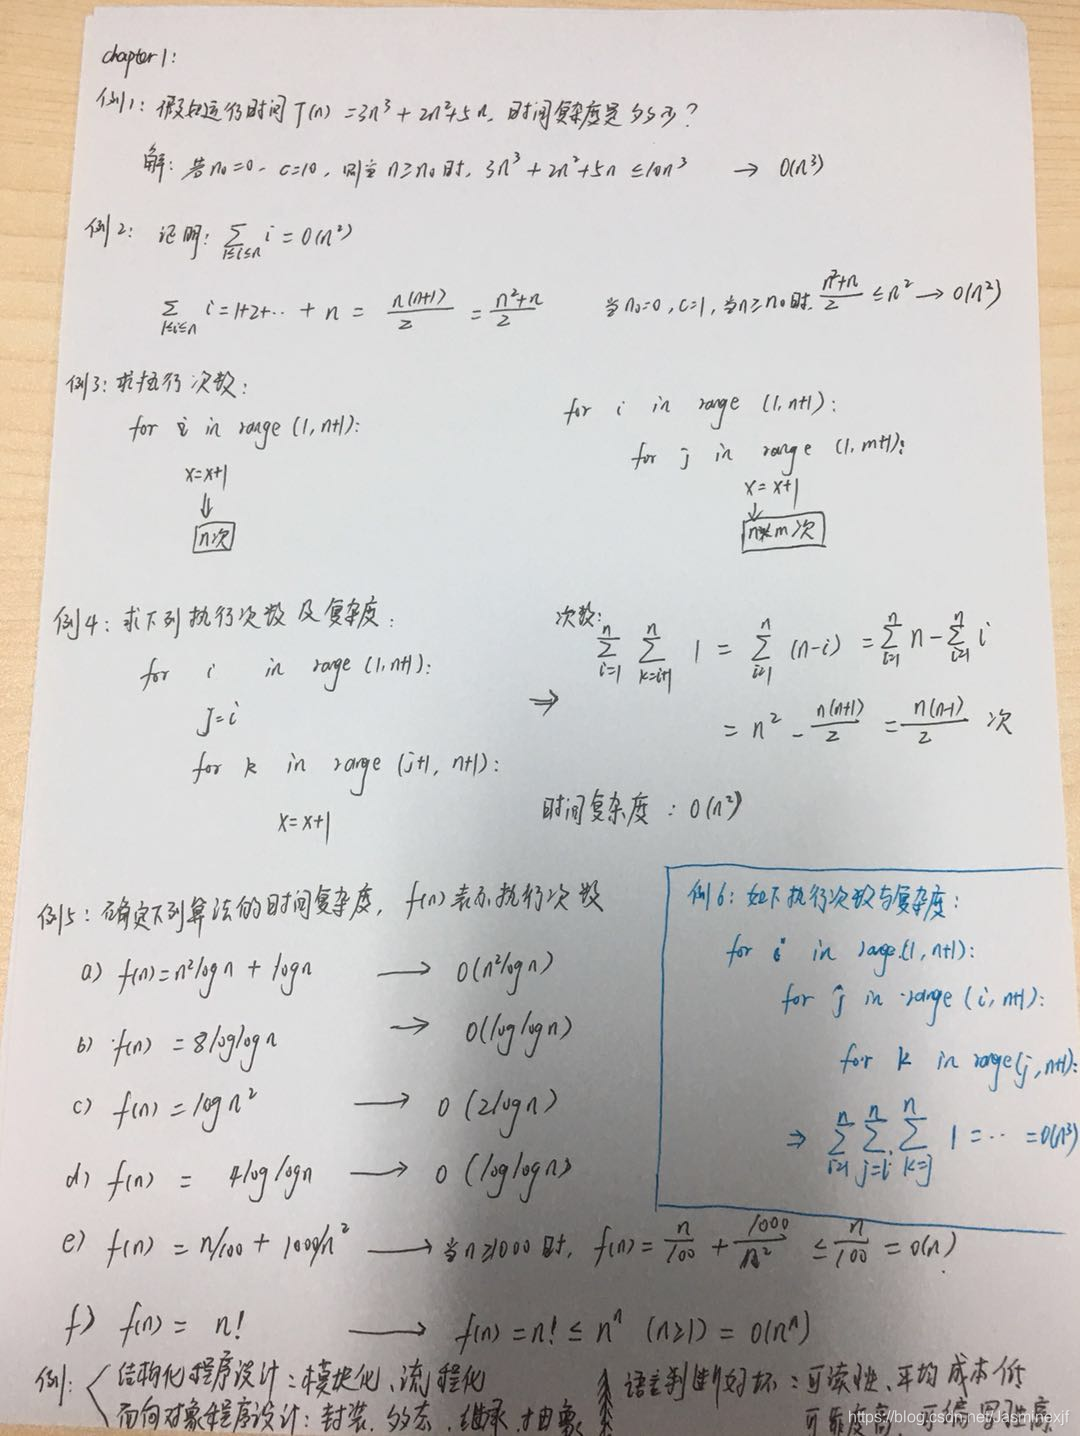 chapter 1:
例1: 假如运行时间 T(n) = 3n³ + 2n²+5n, 时间复杂度是多少?
解: 若 n₀=0, c=10, 则当 n≥n₀时, 3n³ + 2n²+5n ≤10n³ → O(n³)
例2: 证明: ∑_{1≤i≤n} i = O(n²)
∑_{1≤i≤n} i = 1+2+… + n = n(n+1)/2 = (n²+n)/2 当n₀=0, c=1, 当n≥n₀时, (n²+n)/2 ≤ n² → O(n²)
例3: 求执行次数:
for i in range (1, n+1):
x=x+1
⇓
n次
for i in range (1, n+1):
for j in range (1, m+1):
x = x+1
↓
n*m次
例4: 求下列执行次数及复杂度:
for i in range (1, n+1):
j=i
for k in range (j+1, n+1):
x = x+1
⇒
次数:
∑_{i=1}^{n} ∑_{k=i+1}^{n} 1 = ∑_{i=1}^{n} (n-i) = ∑_{i=1}^{n} n - ∑_{i=1}^{n} i
= n² - n(n+1)/2 = n(n-1)/2 次
时间复杂度: O(n²)
例5: 确定下列算法的时间复杂度, f(n)表示执行次数
a) f(n)=n²logn + logn → O(n²logn)
b) f(n) = 8loglogn → O(loglogn)
c) f(n) = logn² → O(2logn)
d) f(n) = 4loglogn → O(loglogn)
e) f(n) = n/100 + 1000/n² → 当n≥1000时, f(n) = n/100 + 1000/n² ≤ n/100 = O(n)
f) f(n) = n! → f(n) = n! ≤ nⁿ (n≥1) = O(nⁿ)
例6: 如下执行次数与复杂度:
for i in range(1, n+1):
for j in range(i, n+1):
for k in range(j, n+1):
⇒ ∑_{i=1}^{n} ∑_{j=i}^{n} ∑_{k=j}^{n} 1 = … = O(n³)
例: 结构化程序设计: 模块化、流程化
面向对象程序设计: 封装、多态、继承、抽象
语言判断好坏: 可读性、平均成本低
可靠度高、可编写性高
https://blog.csdn.net/Jasminexjf